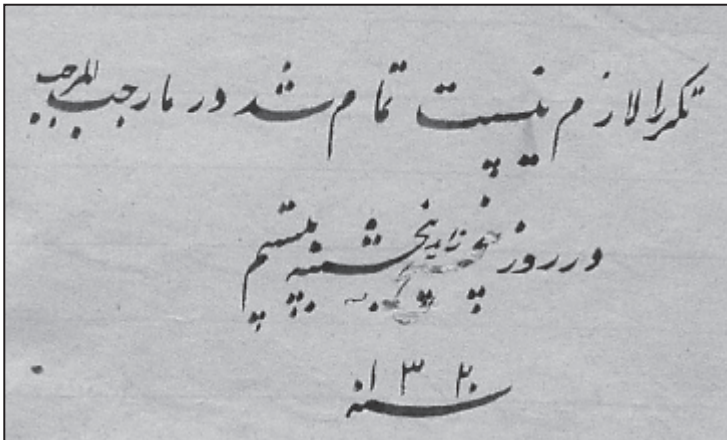 تکرار لازم نیست تمام شد در ما رجب المرجب
در روز پنجشنبه بیستم
سنه ١٣٢٠